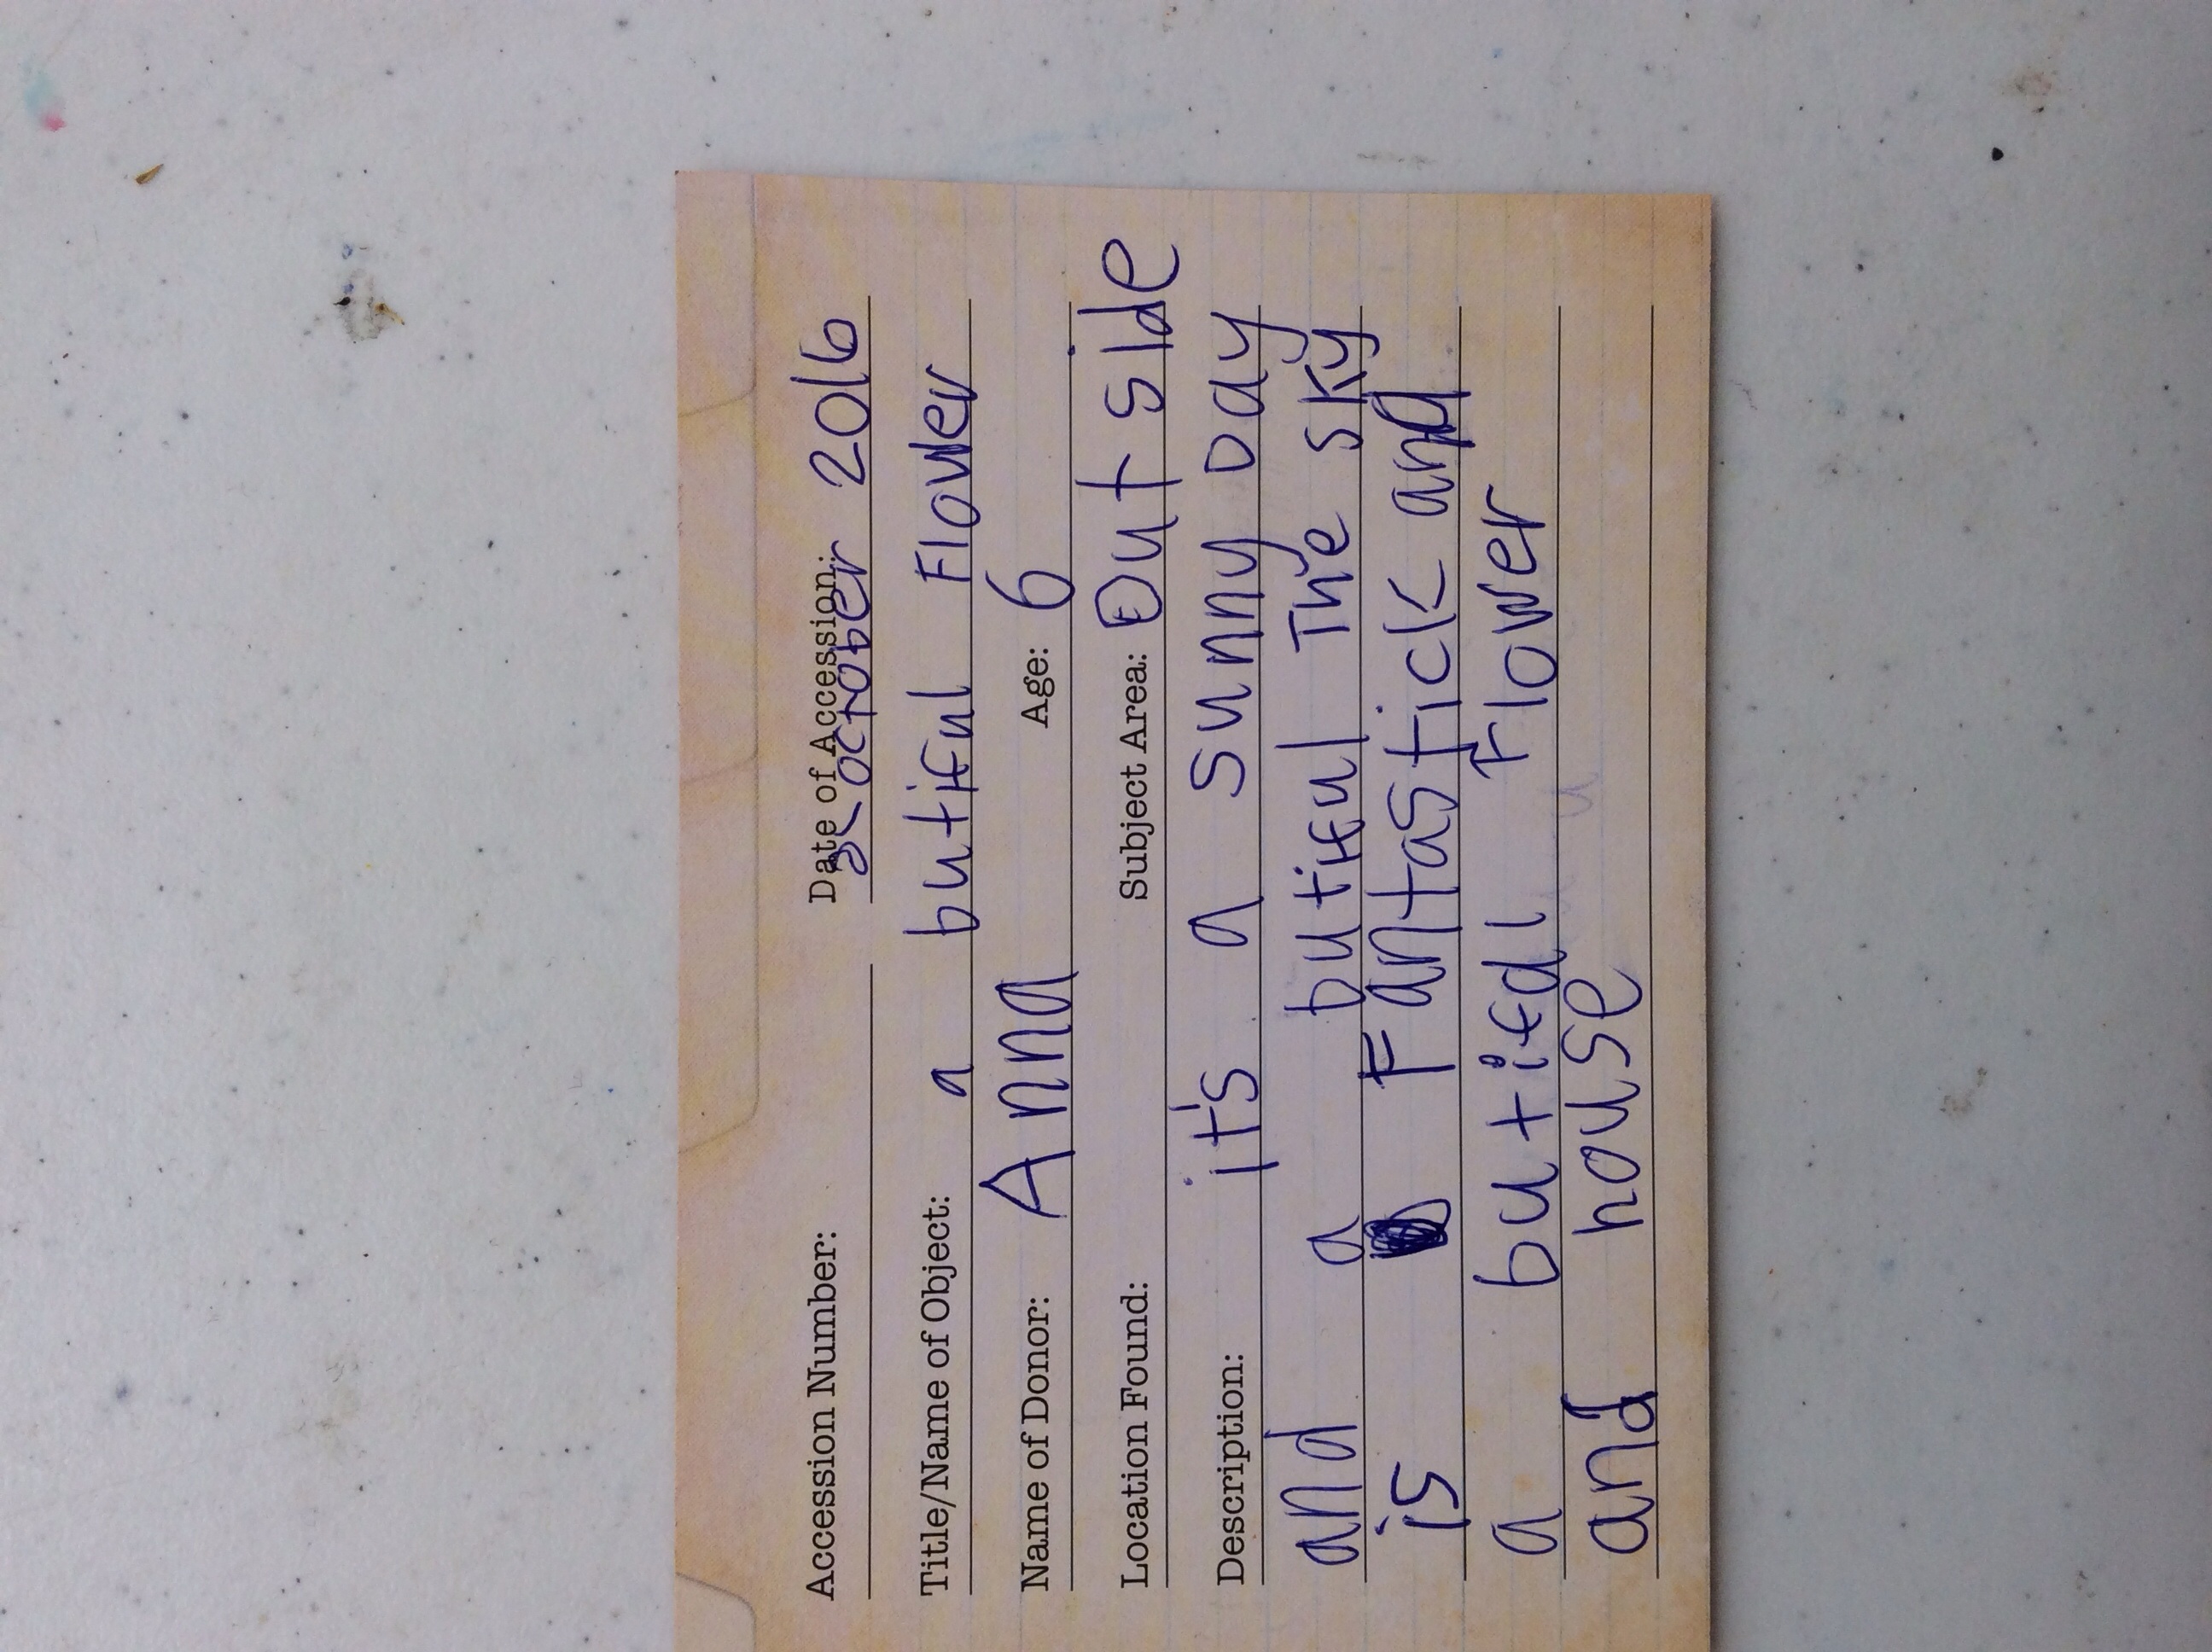 Accession Number: Date of Accession: October 2016
Title/Name of Object: a butiful Flower
Name of Donor: Anna Age: 6
Location Found: Subject Area: Out side
Description: it's a sunny Day
and a butiful The sky
is Fantastick and
a butifdl Flower
and house